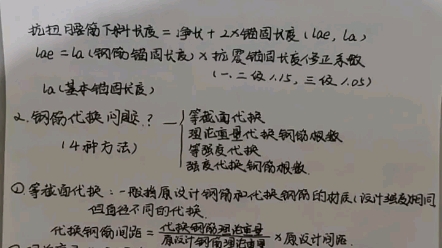 抗扭腰筋下料长度 = 净长 + 2×锚固长度 (lae, la)
lae = la (钢筋锚固长度) × 抗震锚固长度修正系数
(一、二级 1.15, 三级 1.05)
la (基本锚固长度)
2. 钢筋代换问题?
(4种方法)
等截面代换
理论重量代换钢筋根数
等强度代换
强度代换钢筋根数.
①. 等截面代换: 一般指原设计钢筋和代换钢筋的材质(设计强度)相同
但直径不同的代换.
代换钢筋间距 = 代换钢筋理论重量 / 原设计钢筋理论重量 × 原设计间距.